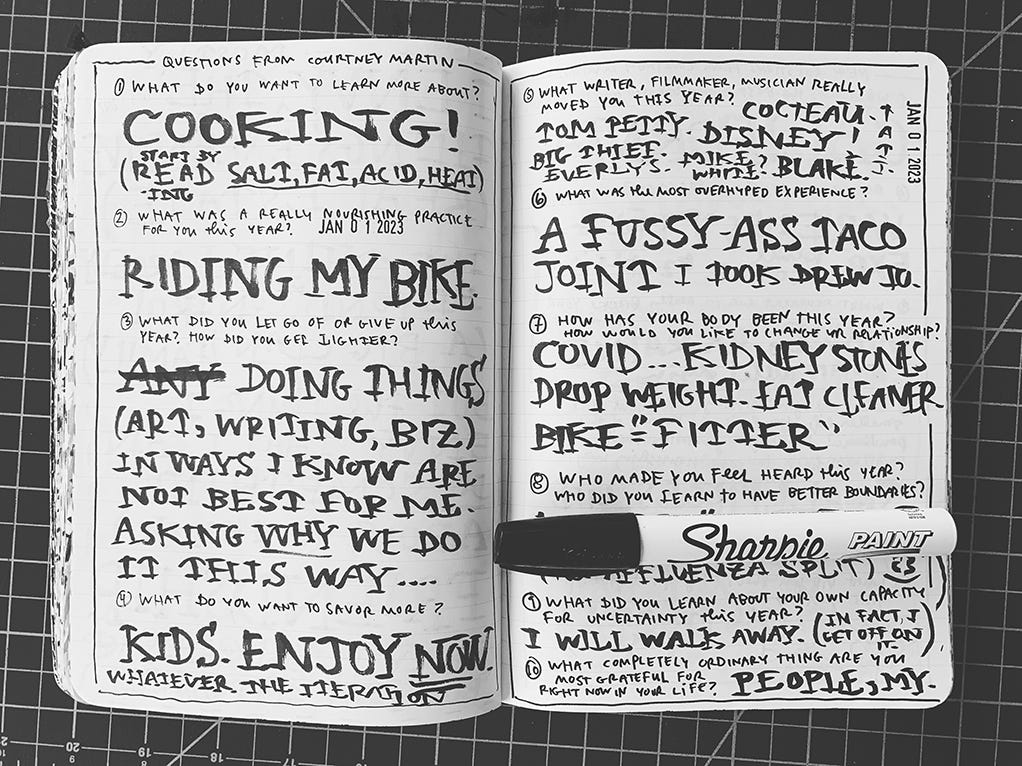 QUESTIONS FROM COURTNEY MARTIN
① WHAT DO YOU WANT TO LEARN MORE ABOUT?
COOKING!
START BY
(READ SALT, FAT, ACID, HEAT)
-ING
② WHAT WAS A REALLY NOURISHING PRACTICE
FOR YOU this YEAR? JAN 0 1 2023
RIDING MY BIKE.
③ WHAT DID YOU LET GO OF OR GIVE UP this
YEAR? HOW DID YOU GET LIGHTER?
ANY DOING THINGS
(ART, WRITING, BIZ)
IN WAYS I KNOW ARE
NOT BEST FOR ME.
ASKING WHY WE DO
IT THIS WAY....
④ WHAT DO YOU WANT TO SAVOR MORE?
KIDS. ENJOY NOW.
WHATEVER THE ITERATION
⑤ WHAT WRITER, FILMMAKER, MUSICIAN REALLY
MOVED YOU THIS YEAR? COCTEAU.
TOM PETTY. DISNEY!
BIG THIEF. MIKE ? BLAKE.
EVERLY'S. WHITE?
JAN 0 1 2023
⑥ WHAT WAS the MOST OVERHYPED EXPERIENCE?
A FUSSY-ASS TACO
JOINT I TOOK DREW TO.
⑦ HOW HAS YOUR BODY BEEN THIS YEAR?
HOW WOULD YOU LIKE TO CHANGE YR RELATIONSHIP?
COVID... KIDNEY STONES
DROP WEIGHT. EAT CLEANER
BIKE = "FITTER"
⑧ WHO MADE YOU FEEL HEARD this YEAR?
WHO DID YOU LEARN TO HAVE BETTER BOUNDARIES?
Sharpie PAINT
AFFLUENZA SPLIT)
⑨ WHAT DID YOU LEARN ABOUT YOUR OWN CAPACITY
FOR UNCERTAINTY this YEAR? (IN FACT, I
I WILL WALK AWAY. GET OFF ON
IT.)
⑩ WHAT COMPLETELY ORDINARY THING ARE YOU
MOST GRATEFUL FOR
RIGHT NOW IN YOUR LIFE? PEOPLE, MY.
20
19
18